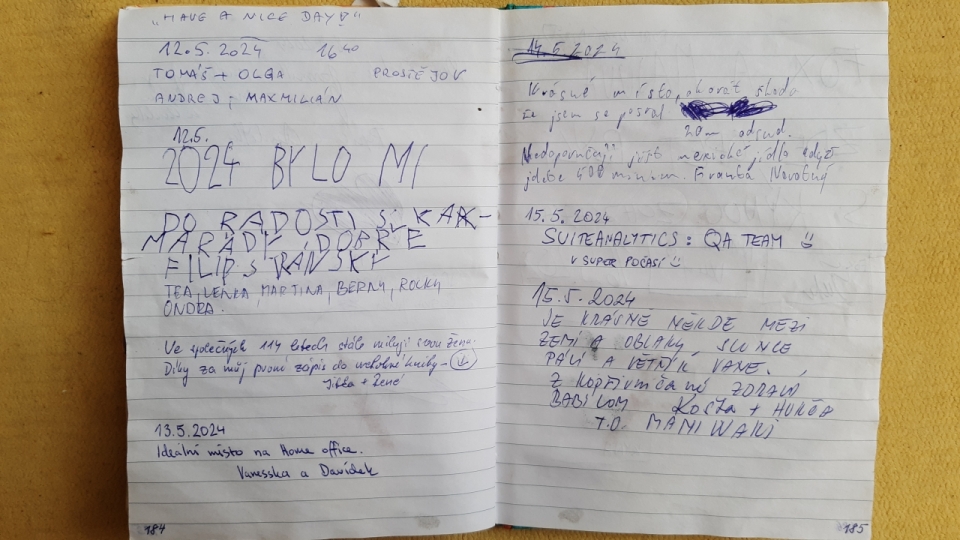 „HAVE A NICE DAY!"
12.5. 2024 16⁴⁰
TOMÁŠ + OLGA PROSTĚJOV
ANDREJ + MAXMILIÁN
12.5.
2024 BYLO MI
DO RADOSTI S KA-
MARÁDY DOBŘE
FILIP S
TEA, LENKA, MARTINA, BERNY, ROCKY
ONDRA.
Ve společných 114 letech stále miluji svou ženu.
Díky za můj první zápis do knihy
Jirka + René
13.5.2024
Ideální místo na Home office.
Vanesska a Davídek
184
14.5.2024
Krásné místo, akorát škoda
že jsem se posral
20m odsud.
Nedoporučuji jíst mexické jídlo když
jdete 400 minimum. Franta Novotný
15.5.2024
SUITEANALYTICS: QA TEAM
V SUPER POČASÍ
15.5.2024
JE KRÁSNĚ NĚKDE MEZI
ZEMÍ A OBLAKY SLUNCE
PÁLÍ A VĚTŘÍK VANE.
Z ZDRAVÍ
BABÍKOM +
T.O.
185